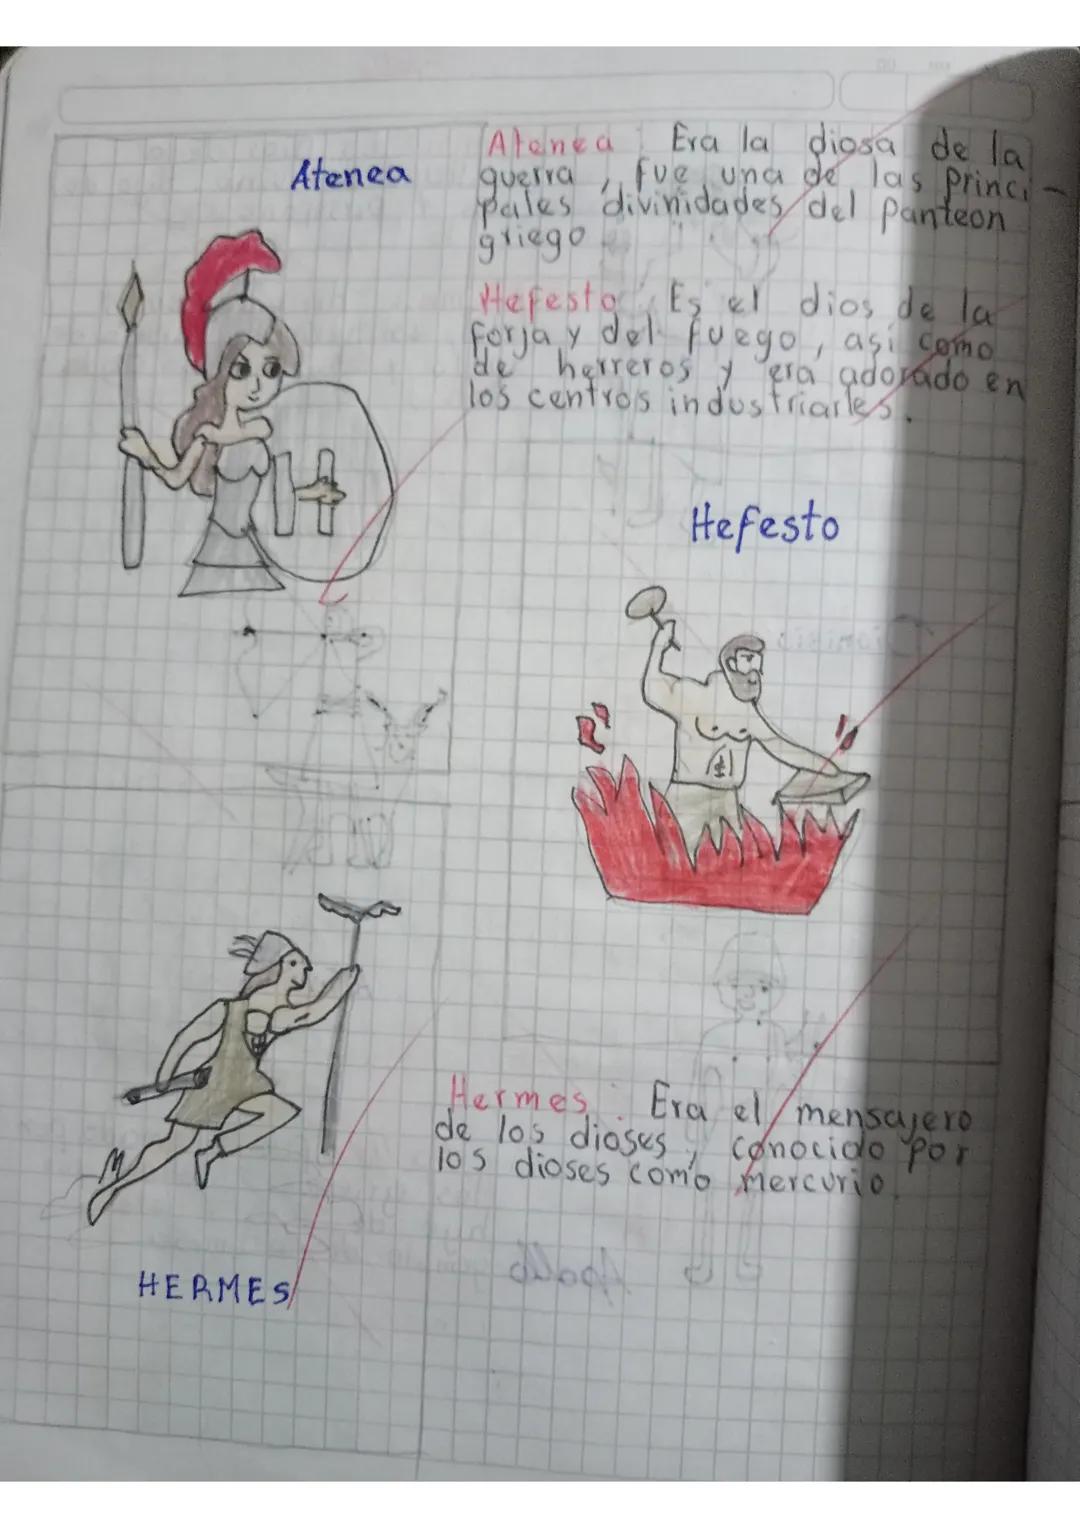 Atenea
Atenea : Era la diosa de la
guerra , fue una de las princi-
pales divinidades del panteon
griego
Hefesto : Es el dios de la
forja y del fuego , asi como
de herreros y era adorado en
los centros industriarles .
Hefesto
Dionisis
Hermes : Era el mensajero
de los dioses , conocido por
los dioses como mercurio .
Apollo
HERMES